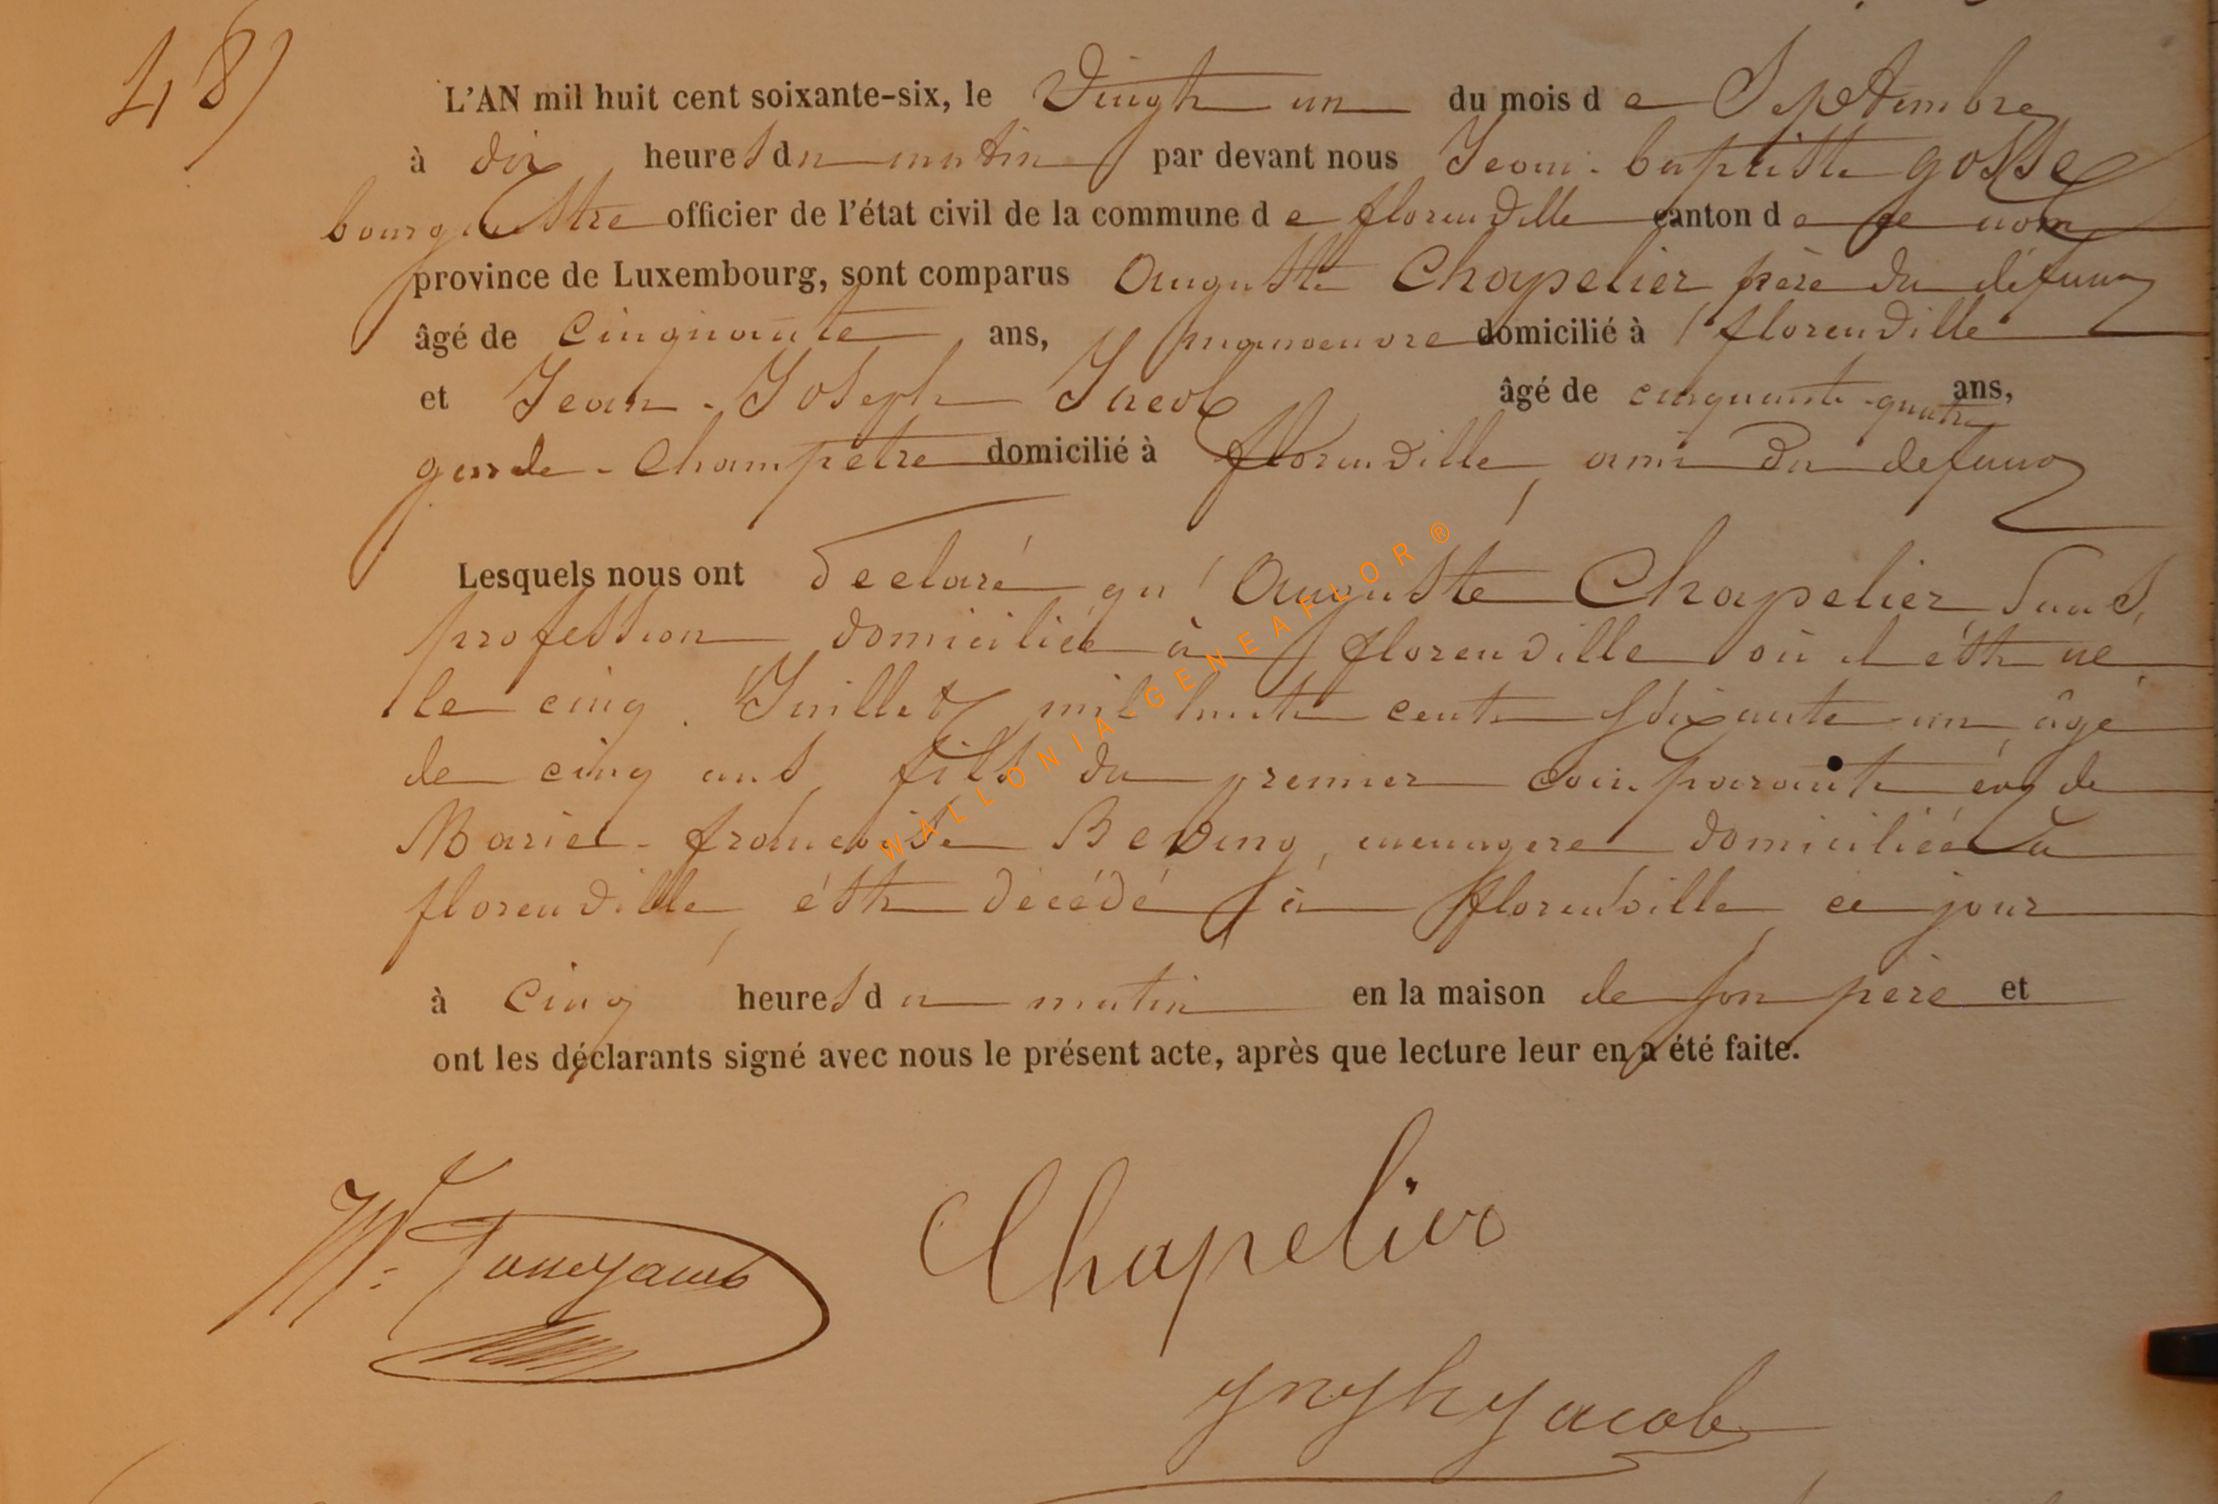 48)
L'AN mil huit cent soixante-six, le Vingt un du mois de Septembre
à dix heures du matin par devant nous Jean-baptiste gosse
bourgmestre officier de l'état civil de la commune de florenville canton de ce nom
province de Luxembourg, sont comparus Auguste Chapelier père du défunt
âgé de cinquante ans, manoeuvre domicilié à florenville
et Jean-Joseph Jacob âgé de cinquante-quatre ans,
garde-Champêtre domicilié à florenville, ami du defunt
Lesquels nous ont declaré qu'Auguste Chapelier, sans
profession domicilié à florenville où il est né
le cinq Juillet mil huit cent soixante un, âgé
de cinq ans, fils du premier comparant et de
Marie-françoise Beving, menagere domiciliée à
florenville, est décédé à florenville, ce jour
à cinq heures du matin en la maison de son père et
ont les déclarants signé avec nous le présent acte, après que lecture leur en a été faite.
Chapelier
Jacob
WALLONIA-GENEAFLOR®